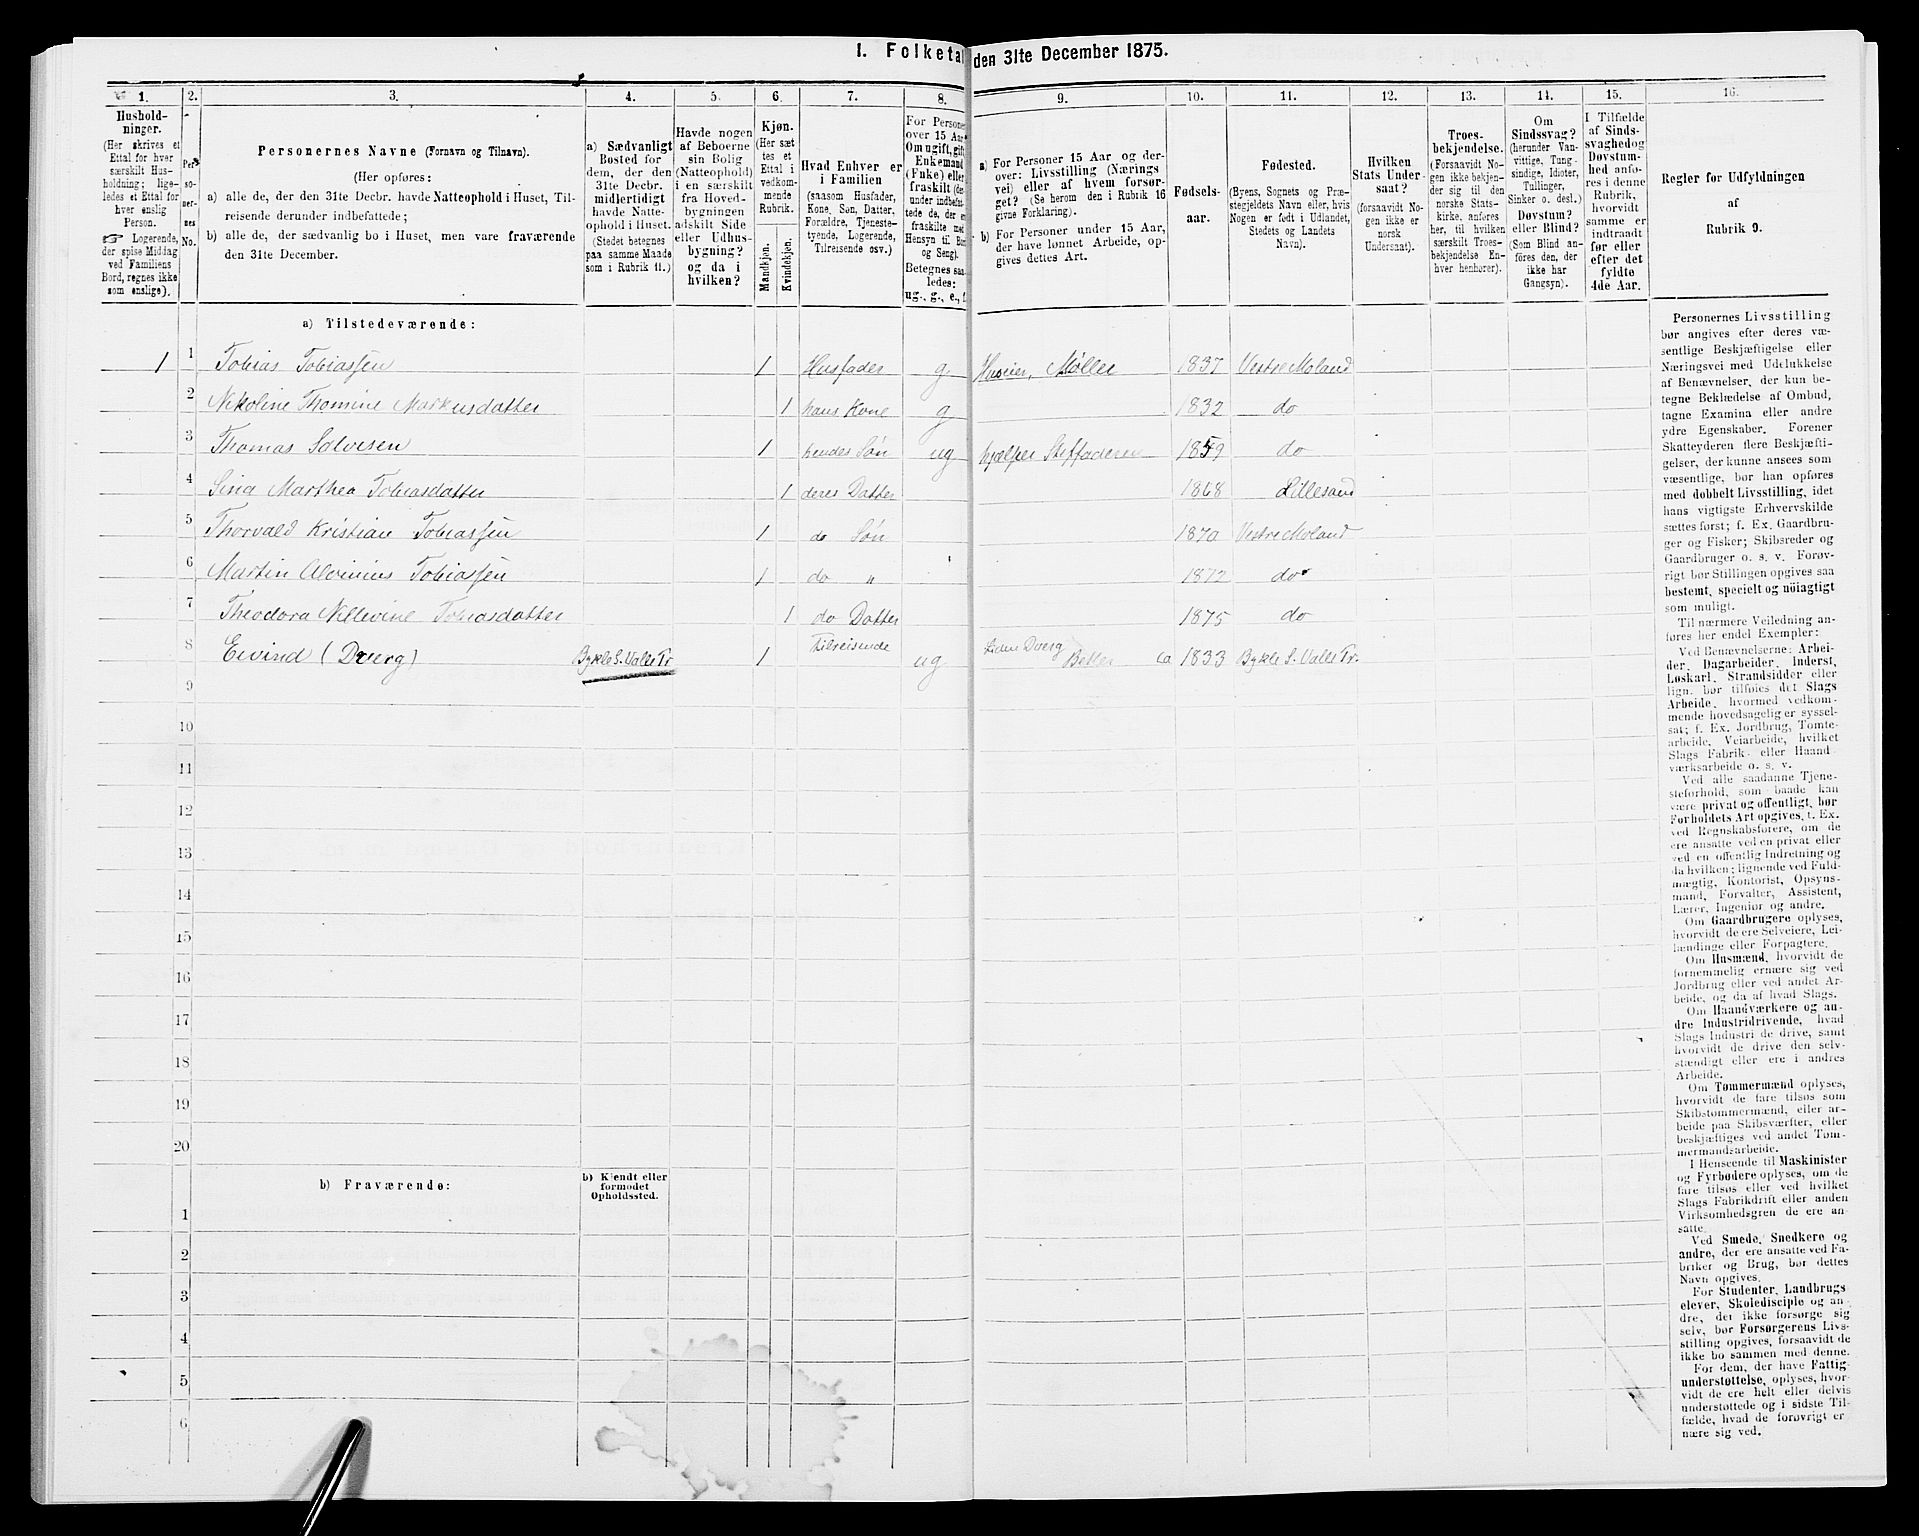 I. Folketal den 31te December 1875.
1. 2. 3. 4. 5. 6. 7. 8. 9. 10. 11. 12. 13. 14. 15. 16.
Hushold-
ninger.
(Her skrives et
Ettal for hver
særskilt Hus-
holdning; lige-
ledes et Ettal for
hver enslig
Person.
☞ Logerende,
der spise Middag
ved Familiens
Bord, regnes ikke
som enslige).
Per-
so-
ner-
nes
No.
Personernes Navne (Fornavn og Tilnavn).
(Her opføres:
a) alle de, der den 31te Decbr. havde Natteophold i Huset, Til-
reisende derunder indbefattede;
b) alle de, der sædvanlig bo i Huset, men vare fraværende
den 31te December.
a) Sædvanligt
Bosted for
dem, der den
31te Decbr.
midlertidigt
havde Natte-
ophold i Huset.
(Stedet betegnes
paa samme Maade
som i Rubrik 11.)
Havde nogen
af Beboerne
sin Bolig
(Natteophold)
i en særskilt
fra Hoved-
bygningen
adskilt Side
eller Udhus-
bygning?
og da i
hvilken?
Kjøn.
(Her sæt-
tes et
Ettal i
vedkom-
mende
Rubrik.
Mandkjøn.
Kvindekjøn.
Hvad Enhver er
i Familien
(saasom Husfader,
Kone, Søn, Datter,
Forældre, Tjeneste-
tyende, Logerende,
Tilreisende osv.)
For Personer
over 15 Aar
Om ugift, gift
Enkemand
(Enke) eller
fraskilt (der-
under indbefat-
tede de, der er
fraskilte med
Hensyn til Bord
og Seng).
Betegnes saa-
ledes:
ug., g., e., f.
a) For Personer 15 Aar og der-
over: Livsstilling (Nærings
vei) eller af hvem forsør-
get? (Se herom den i Rubrik 16
givne Forklaring).
b) For Personer under 15 Aar,
der have lønnet Arbeide, op-
gives dettes Art.
Fødsels-
aar.
Fødested.
(Byens, Sognets og Præ-
stegjeldets Navn eller, hvis
Nogen er født i Udlandet,
Stedets og Landets
Navn).
Hvilken
Stats Under-
saat?
(forsaavidt No-
gen ikke er
norsk
Undersaat).
Troes-
bekjendelse.
(Forsaavidt No-
gen ikke bekjen-
der sig til den
norske Stats-
kirke, anføres
her, til hvilken
særskilt Troes-
bekjendelse En-
hver henhører).
Om
Sindssvag?
(herunder Van-
vittige, Tung-
sindige, Idioter,
Tullinger,
Sinker o. desl.)
Døvstum?
eller Blind?
(Som Blind an-
føres den, der
ikke har
Gangsyn).
I Tilfælde
af Sinds-
svaghed og
Døvstum-
hed anfø-
res i denne
Rubrik,
hvorvidt
samme er
indtraadt
før eller
efter det
fyldte
4de Aar.
Regler for Udfyldningen
af
Rubrik 9.
a) Tilstedeværende:
1 1 Tobias Tobiassen 1 Husfader g Huseier, Møller 1837 Vestre Moland
2 Nikoline Thomine Markusdatter 1 hans Kone g 1832 do
3 Thomas Solvesen 1 hendes Søn ug hjælper Stiffaderen 1859 do
4 Sina Marthea Tobiasdatter 1 deres Datter 1868 Lillesand
5 Thorvald Kristian Tobiassen 1 do Søn 1870 Vestre Moland
6 Martin Alvinius Tobiassen 1 do " 1872 do
7 Theodora Nillevine Tobiasdatter 1 do Datter 1875 do
8 Eivind (Dverg) Bykle S. Valle Pr. 1 Tilreisende ug Liden Dverg Betler ca 1833 Bykle S. Valle Pr.
9
10
11
12
13
14
15
16
17
18
19
20
b) Fraværende:
b) Kjendt eller
formodet
Opholdssted.
1
2
3
4
5
6
Personernes Livsstilling
bør angives efter deres væ-
sentlige Beskjæftigelse eller
Næringsvei med Udelukkelse
af Benævnelser, der kun be-
tegne Beklædelse af Ombud,
tagne Examina eller andre
ydre Egenskaber. Forener
Skatteyderen flere Beskjæfti-
gelser, der kunne ansees som
væsentlige, bør han opføres
med dobbelt Livsstilling, idet
hans vigtigste Erhvervskilde
sættes først; f. Ex. Gaardbru-
ger og Fisker; Skibsreder og
Gaardbruger o. s. v. Forøv-
rigt bør Stillingen opgives saa
bestemt, specielt og nøiagtigt
som muligt.
Til nærmere Veiledning an-
føres her endel Exempler:
Ved Benævnelserne: Arbei-
der, Dagarbeider, Inderst,
Løskarl, Strandsidder eller
lign. bør tilføies det Slags
Arbeide, hvormed vedkom-
mende hovedsagelig er syssel-
sat; f. Ex. Jordbrug, Tomte-
arbeide, Veiarbeide, hvilket
Slags Fabrik- eller Haand-
værksarbeide o. s. v.
Ved alle saadanne Tjene-
steforhold, som baade kan
være privat og offentligt, bør
Forholdets Art opgives, f. Ex.
ved Regnskabsførere, om de
ere ansatte ved en privat eller
ved en offentlig Indretning og
da hvilken; lignende ved Fuld-
mægtig, Kontorist, Opsyns-
mand, Forvalter, Assistent,
Lærer, Ingeniør og andre.
Om Gaardbrugere oplyses,
hvorvidt de ere Selveiere, Lei-
lændinge eller Forpagtere.
Om Husmænd, hvorvidt de
fornemmelig ernære sig ved
Jordbrug eller ved andet Ar-
beide, og da af hvad Slags.
Om Haandværkere og an-
dre Industridrivende, hvad
Slags Industri de drive, samt
hvorvidt de drive den selv-
stændigt eller ere i andres
Arbeide.
Om Tømmermænd oplyses,
hvorvidt de fare tilsøs som
Skibstømmermænd, eller ar-
beide paa Skibsværfter, eller
beskjæftiges ved andet Tøm-
mermandsarbeide.
I Henseende til Maskinister
og Fyrbødere oplyses, om de
fare tilsøs eller ved hvilket
Slags Fabrikdrift eller anden
Virksomhedsgren de ere an-
satte.
Ved Smede, Snedkere og
andre, der ere ansatte ved Fa-
briker og Brug, bør dettes
Navn opgives.
For Studenter, Landbrugs
elever, Skoledisciple og an-
dre, der ikke forsørge sig
selv, bør Forsørgerens Livs-
stilling opgives, forsaavidt de
ikke bo sammen med denne.
For dem, der have Fattig-
understøttelse, oplyses, hvor-
vidt de ere helt eller delvis
understøttede og i sidste Til-
fælde, hvad de forøvrigt er
nære sig ved.